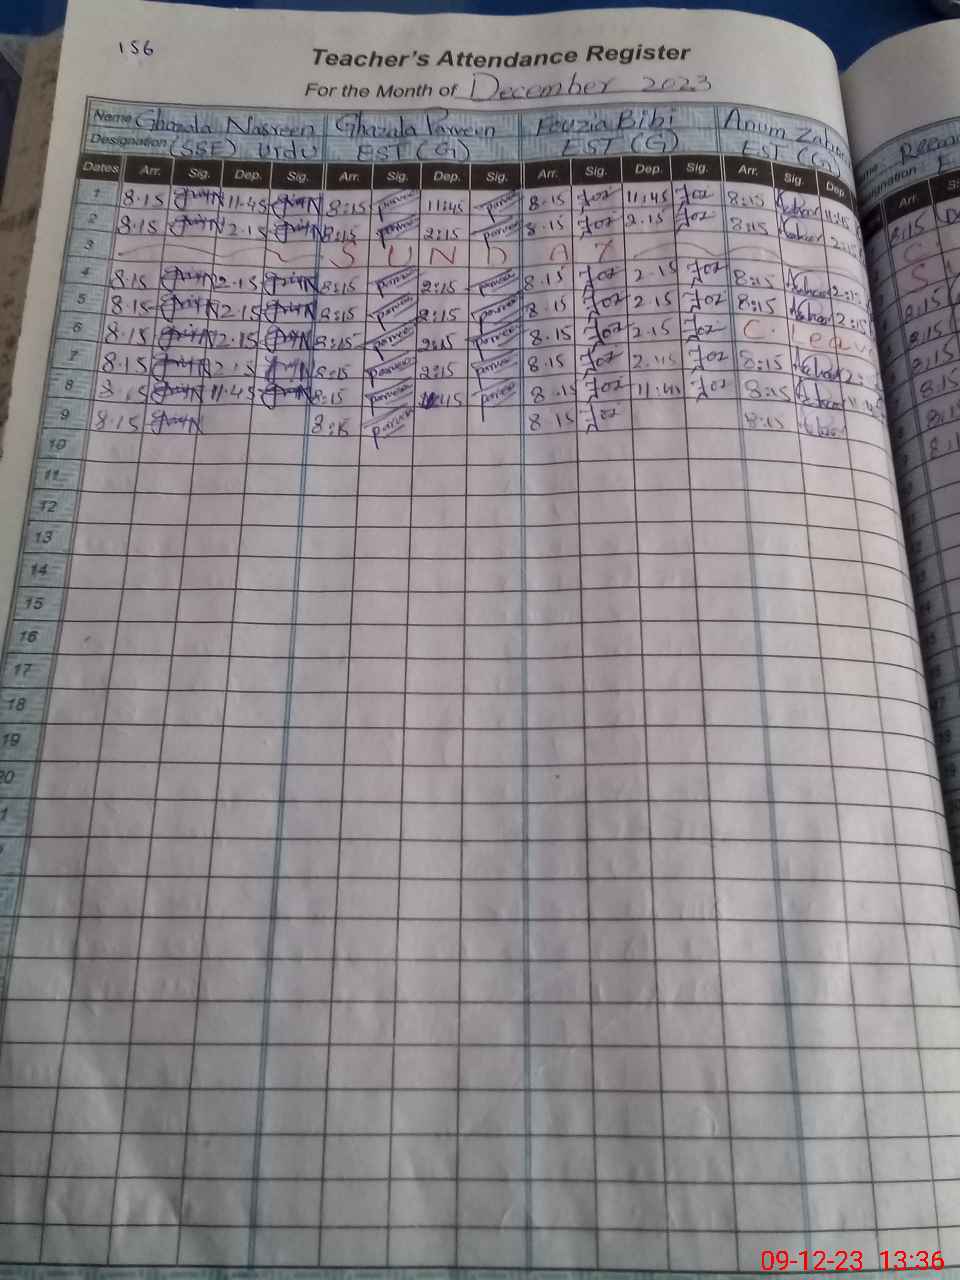 156
Teacher's Attendance Register
For the Month of December 2023
Name Ghazala Nasreen Ghazala Parveen Fouzia Bibi Anum Zahoor
Designation (SSE) Urdu EST (G) EST (G) EST (G)
Dates Arr. Sig. Dep. Sig. Arr. Sig. Dep. Sig. Arr. Sig. Dep. Sig. Arr. Sig. Dep. Arr.
1 8.15 11.45 8:15 parveen 11:45 parveen 8.15 11.45 8:15 11:45 8:15
2 8.15 2.15 8:15 parveen 2:15 parveen 8.15 2.15 8:15 2:15 C
3 S U N D A Y S
4 8.15 2.15 8:15 parveen 2:15 parveen 8.15 2.15 8:15 2:15 8:15
5 8.15 2.15 8:15 parveen 2:15 parveen 8.15 2.15 8:15 2:15 8:15
6 8.15 2.15 8:15 parveen 2:15 parveen 8.15 2.15 C. Leave 8:15
7 8.15 2.15 8:15 parveen 2:15 parveen 8.15 2.15 8:15 2: 8.15
8 8.15 11.45 8:15 parveen 11:45 parveen 8.15 11:45 8:15 11:45 8:15
9 8.15 8:15 parveen 8.15 8:15 8:1
10
11
12
13
14
15
16
17
18
19
20
09-12-23 13:36